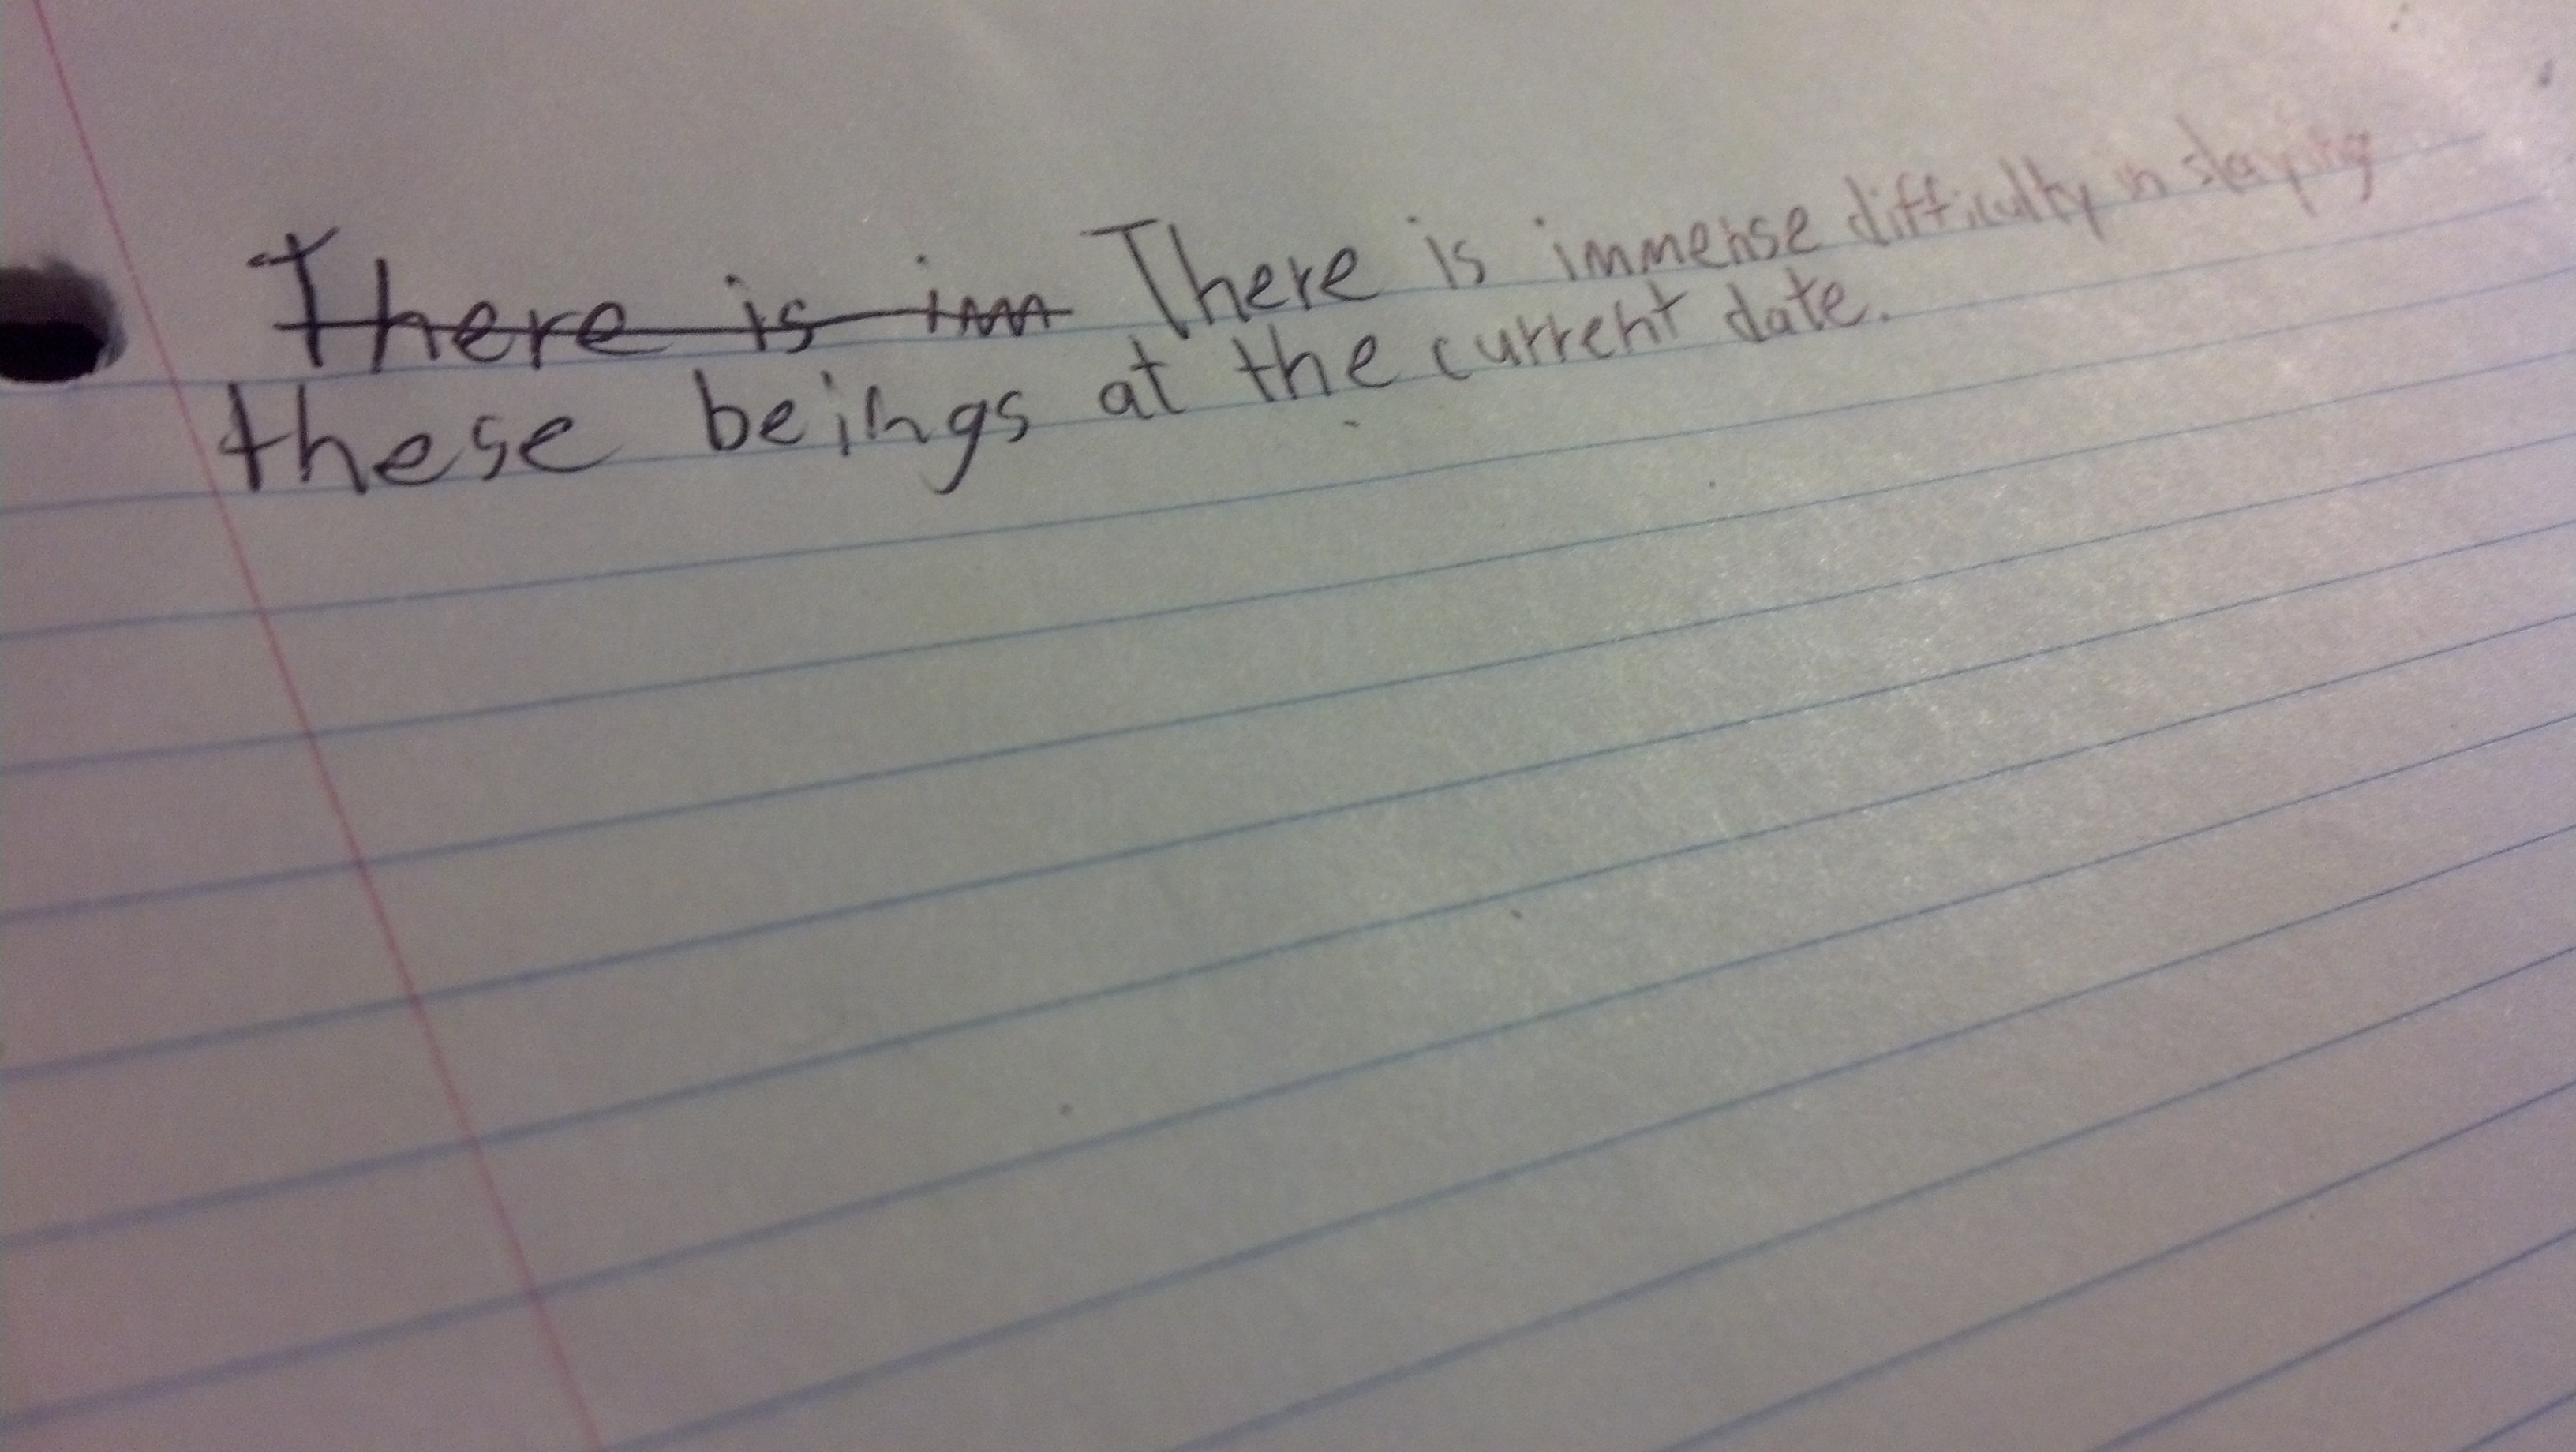 There is im There is immense difficulty in slaying
these beings at the current date.